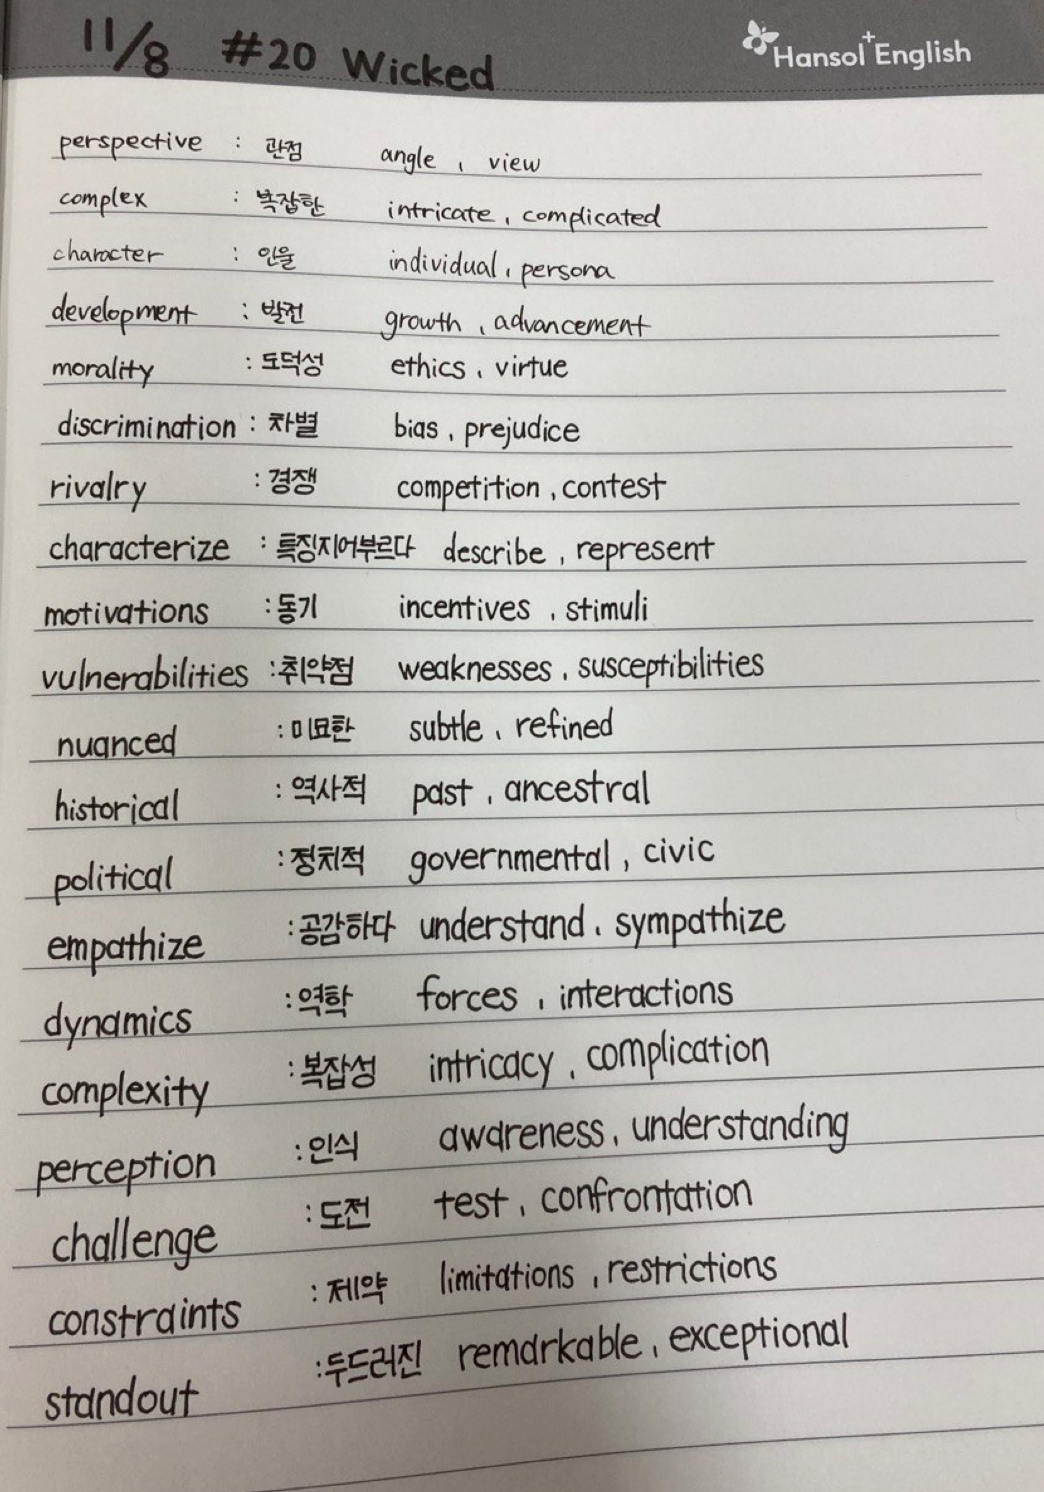 11/8 #20 Wicked Hansol+English
perspective : 관점 angle , view
complex : 복잡한 intricate , complicated
character : 인물 individual , persona
development : 발전 growth , advancement
morality : 도덕성 ethics , virtue
discrimination : 차별 bias , prejudice
rivalry : 경쟁 competition , contest
characterize : 특징지어부르다 describe , represent
motivations : 동기 incentives , stimuli
vulnerabilities : 취약점 weaknesses , susceptibilities
nuanced : 미묘한 subtle , refined
historical : 역사적 past , ancestral
political : 정치적 governmental , civic
empathize : 공감하다 understand , sympathize
dynamics : 역학 forces , interactions
complexity : 복잡성 intricacy , complication
perception : 인식 awareness , understanding
challenge : 도전 test , confrontation
constraints : 제약 limitations , restrictions
standout : 두드러진 remarkable , exceptional